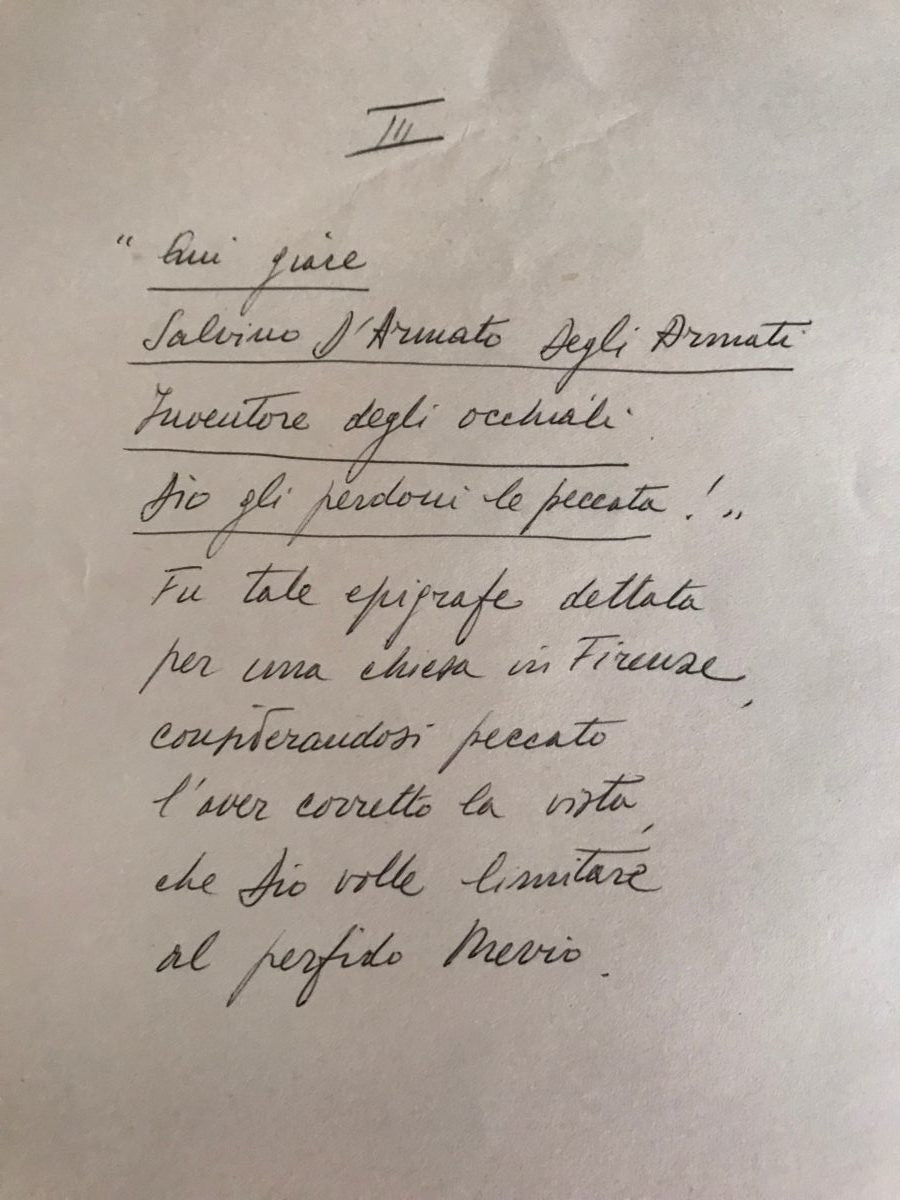 III
“Qui giace
Salvino D'Armato Degli Armati
Inventore degli occhiali
Dio gli perdoni le peccata!„
Fu tale epigrafe dettata
per una chiesa in Firenze,
considerandosi peccato
l'aver corretto la vista,
che Dio volle limitare
al perfido Mevio.